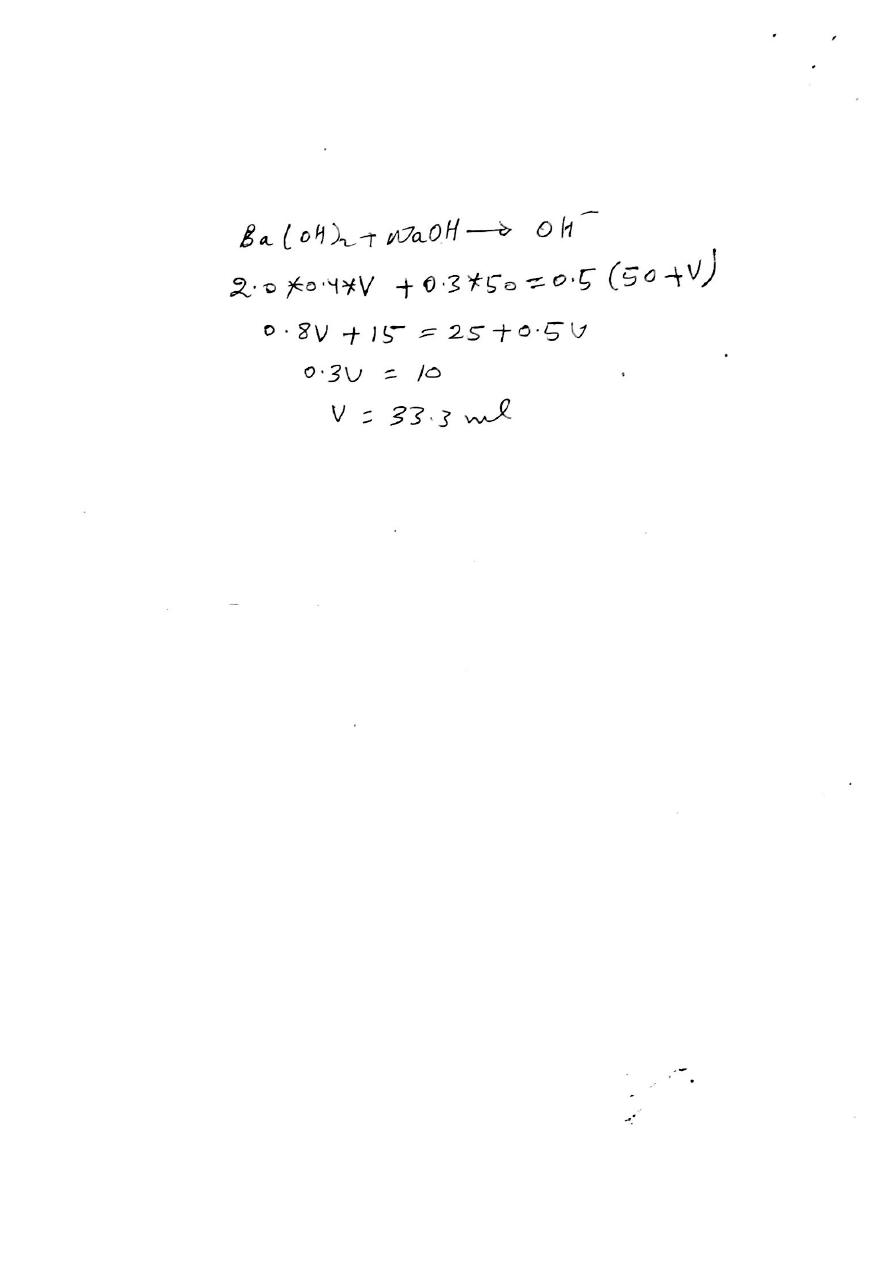 Ba(OH)₂ + NaOH → OH⁻
2.0*0.4*V + 0.3*50 = 0.5 (50+V)
0.8V + 15 = 25 + 0.5V
0.3V = 10
V = 33.3 ml